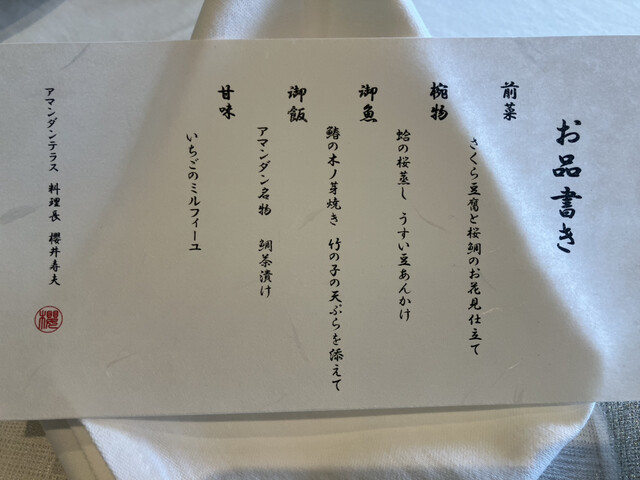 お品書き
前菜
さくら豆腐と桜鯛のお花見仕立て
椀物
蛤の桜蒸し うすい豆あんかけ
御魚
鰆の木ノ芽焼き 竹の子の天ぷらを添えて
御飯
アマンダン名物 鯛茶漬け
甘味
いちごのミルフィーユ
アマンダンテラス 料理長 櫻井寿夫
櫻